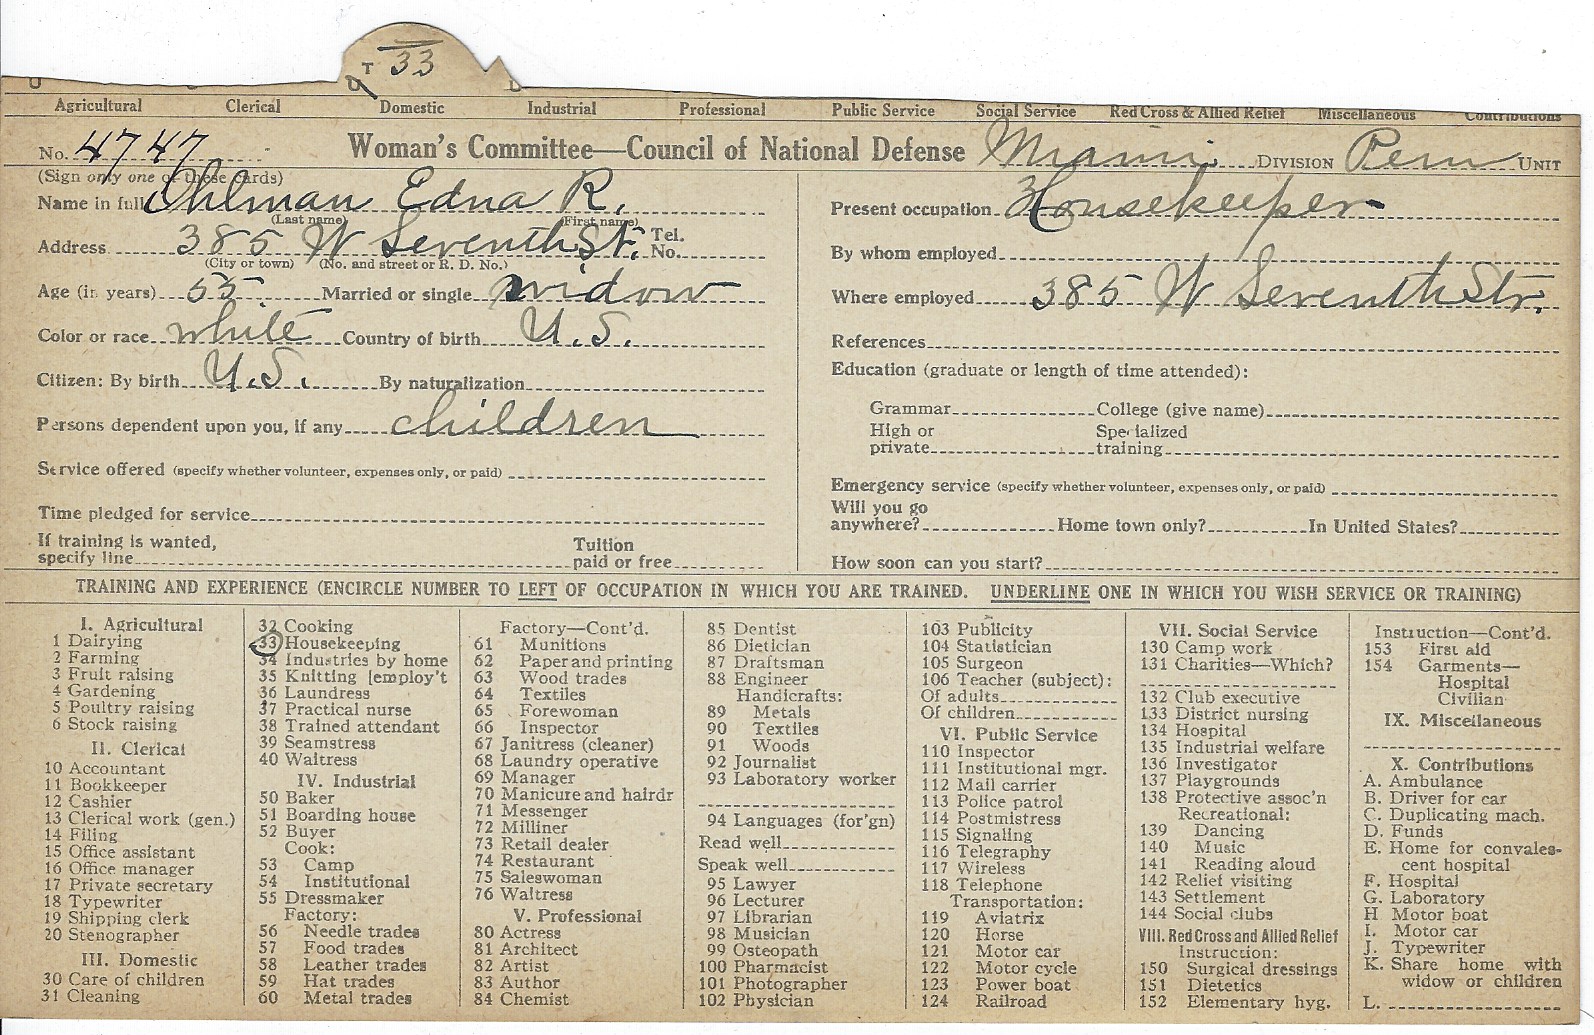 T 33
Agricultural Clerical Domestic Industrial Professional Public Service Social Service Red Cross & Allied Relief Miscellaneous Contributions
No. 4747 Woman's Committee—Council of National Defense Miami DIVISION Peru UNIT
(Sign only one of these cards)
Name in full Ohlman Edna R.
(Last name) (First name)
Address 385 W Seventh St. Tel. No.
(City or town) (No. and street or R. D. No.)
Age (in years) 55 Married or single widow
Color or race white Country of birth U.S.
Citizen: By birth U.S. By naturalization
Persons dependent upon you, if any children
Service offered (specify whether volunteer, expenses only, or paid)
Time pledged for service
If training is wanted, specify line Tuition paid or free
Present occupation Housekeeper
By whom employed
Where employed 385 W Seventh Str.
References
Education (graduate or length of time attended):
Grammar College (give name)
High or private Specialized training
Emergency service (specify whether volunteer, expenses only, or paid)
Will you go anywhere? Home town only? In United States?
How soon can you start?
TRAINING AND EXPERIENCE (ENCIRCLE NUMBER TO LEFT OF OCCUPATION IN WHICH YOU ARE TRAINED. UNDERLINE ONE IN WHICH YOU WISH SERVICE OR TRAINING)
I. Agricultural
1 Dairying
2 Farming
3 Fruit raising
4 Gardening
5 Poultry raising
6 Stock raising
II. Clerical
10 Accountant
11 Bookkeeper
12 Cashier
13 Clerical work (gen.)
14 Filing
15 Office assistant
16 Office manager
17 Private secretary
18 Typewriter
19 Shipping clerk
20 Stenographer
III. Domestic
30 Care of children
31 Cleaning
32 Cooking
33 Housekeeping
34 Industries by home
35 Knitting [employ't
36 Laundress
37 Practical nurse
38 Trained attendant
39 Seamstress
40 Waitress
IV. Industrial
50 Baker
51 Boarding house
52 Buyer
Cook:
53 Camp
54 Institutional
55 Dressmaker
Factory:
56 Needle trades
57 Food trades
58 Leather trades
59 Hat trades
60 Metal trades
Factory—Cont'd.
61 Munitions
62 Paper and printing
63 Wood trades
64 Textiles
65 Forewoman
66 Inspector
67 Janitress (cleaner)
68 Laundry operative
69 Manager
70 Manicure and hairdr
71 Messenger
72 Milliner
73 Retail dealer
74 Restaurant
75 Saleswoman
76 Waitress
V. Professional
80 Actress
81 Architect
82 Artist
83 Author
84 Chemist
85 Dentist
86 Dietician
87 Draftsman
88 Engineer
Handicrafts:
89 Metals
90 Textiles
91 Woods
92 Journalist
93 Laboratory worker
94 Languages (for'gn)
Read well
Speak well
95 Lawyer
96 Lecturer
97 Librarian
98 Musician
99 Osteopath
100 Pharmacist
101 Photographer
102 Physician
103 Publicity
104 Statistician
105 Surgeon
106 Teacher (subject):
Of adults
Of children
VI. Public Service
110 Inspector
111 Institutional mgr.
112 Mail carrier
113 Police patrol
114 Postmistress
115 Signaling
116 Telegraphy
117 Wireless
118 Telephone
Transportation:
119 Aviatrix
120 Horse
121 Motor car
122 Motor cycle
123 Power boat
124 Railroad
VII. Social Service
130 Camp work
131 Charities—Which?
132 Club executive
133 District nursing
134 Hospital
135 Industrial welfare
136 Investigator
137 Playgrounds
138 Protective assoc'n
Recreational:
139 Dancing
140 Music
141 Reading aloud
142 Relief visiting
143 Settlement
144 Social clubs
VIII. Red Cross and Allied Relief
Instruction:
150 Surgical dressings
151 Dietetics
152 Elementary hyg.
Instruction—Cont'd.
153 First aid
154 Garments—
Hospital
Civilian
IX. Miscellaneous
X. Contributions
A. Ambulance
B. Driver for car
C. Duplicating mach.
D. Funds
E. Home for convales-
cent hospital
F. Hospital
G. Laboratory
H Motor boat
I. Motor car
J. Typewriter
K. Share home with
widow or children
L.